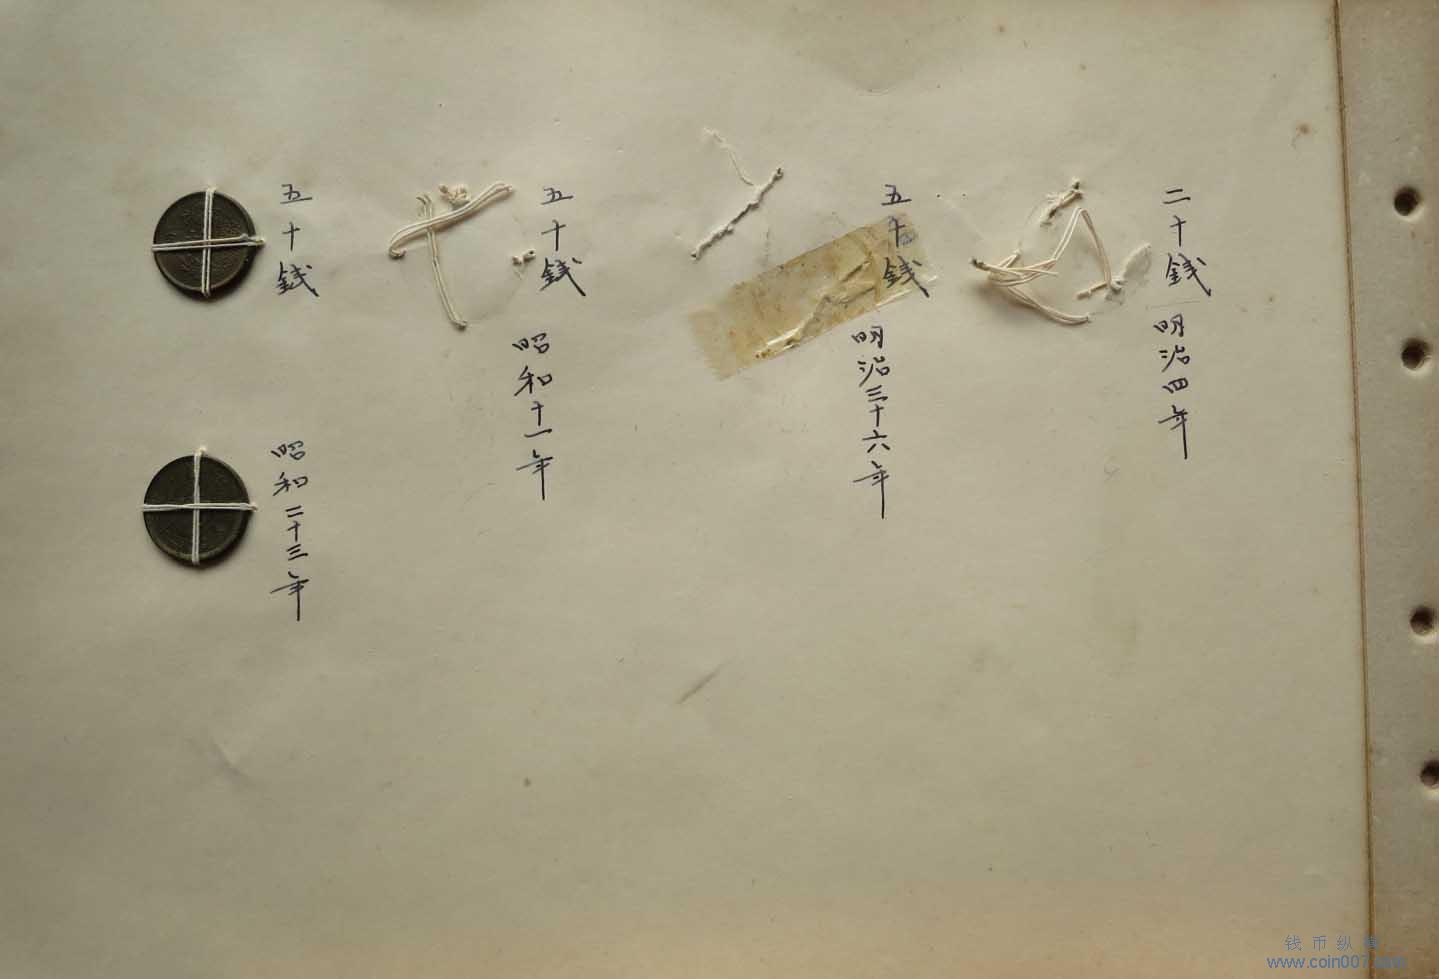 二十銭
明治四年
五十銭
明治三十六年
五十銭
昭和十一年
五十銭
昭和二十三年
钱币纵横
www.coin007.com